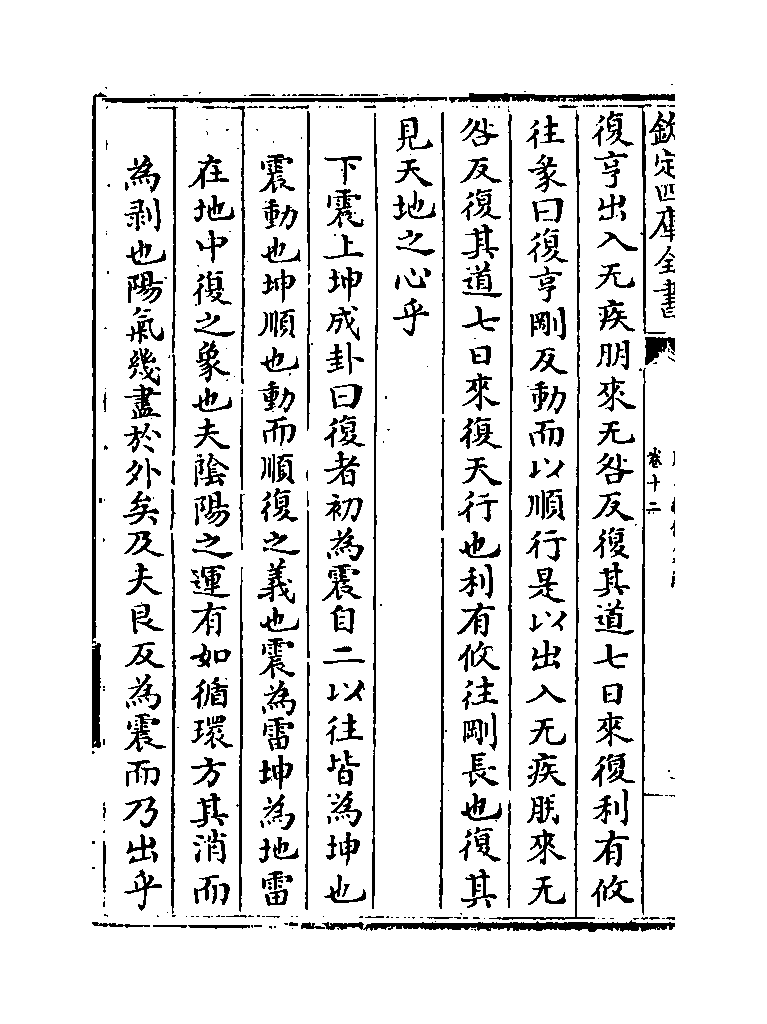 欽定四庫全書
卷十二
復亨出入无疾朋來无咎反復其道七日來復利有攸
往彖曰復亨剛反動而以順行是以出入无疾朋來无
咎反復其道七日來復天行也利有攸往剛長也復其
見天地之心乎
下震上坤成卦曰復者初為震自二以往皆為坤也
震動也坤順也動而順復之義也震為雷坤為地雷
在地中復之象也夫陰陽之運有如循環方其消而
為剥也陽氣幾盡於外矣及夫艮反為震而乃出乎